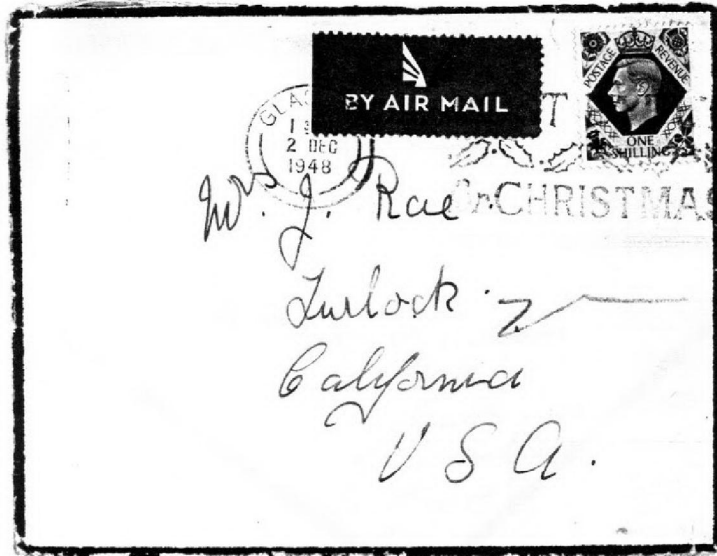 BY AIR MAIL
POSTAGE REVENUE
ONE
SHILLING
2 DEC
1948
CHRISTMAS
Mrs. J. Rae
Turlock
California
U S A.